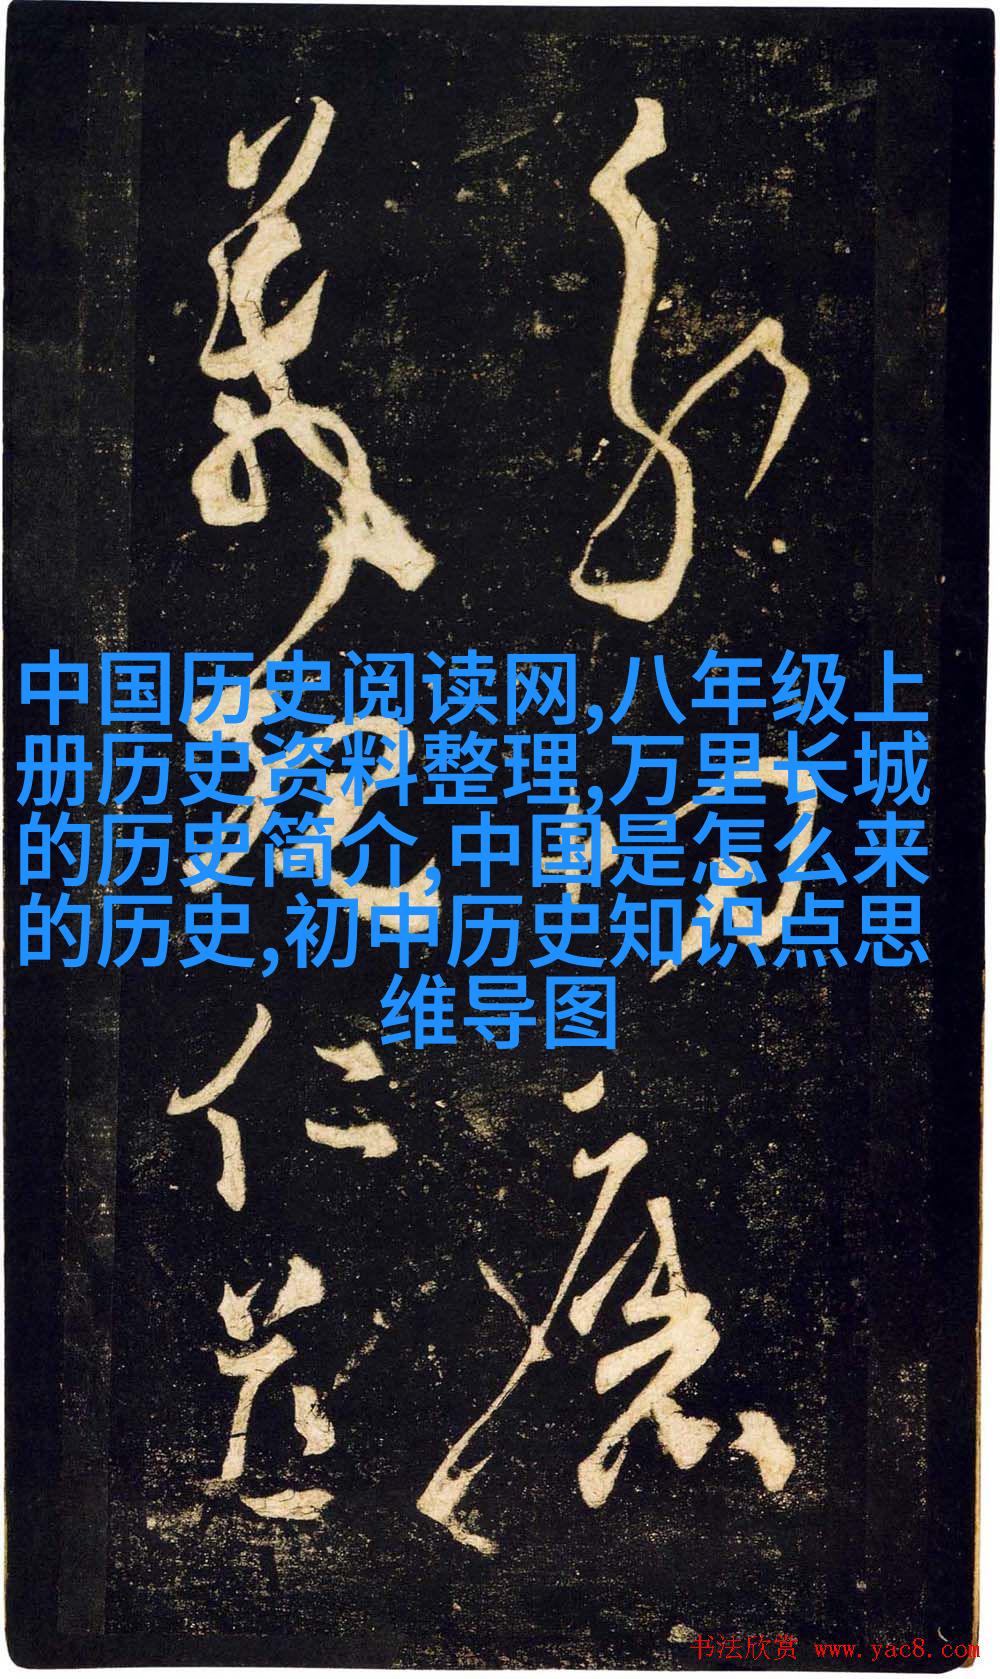 分切磨
箴規仁慈
中国历史阅读网,八年级上
册历史资料整理,万里长城
的历史简介,中国是怎么来
的历史,初中历史知识点思
维导图
书法欣赏 www.yac8.com